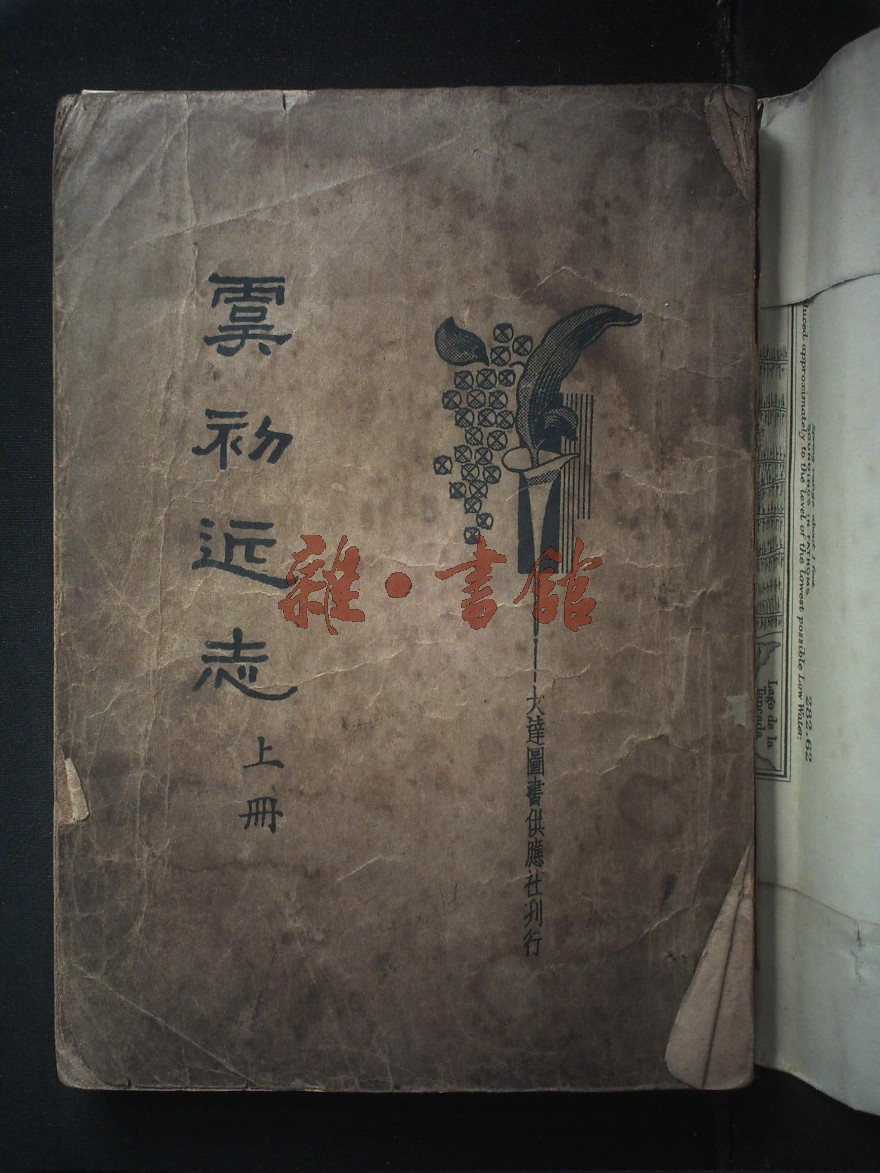 虞初近志
上冊
大達圖書供應社刋行
雜·書館
duced approximately to the level of the lowest possible Low Water.
SOUNDINGS IN FATHOMS
232.62
Lago de la
Tancada